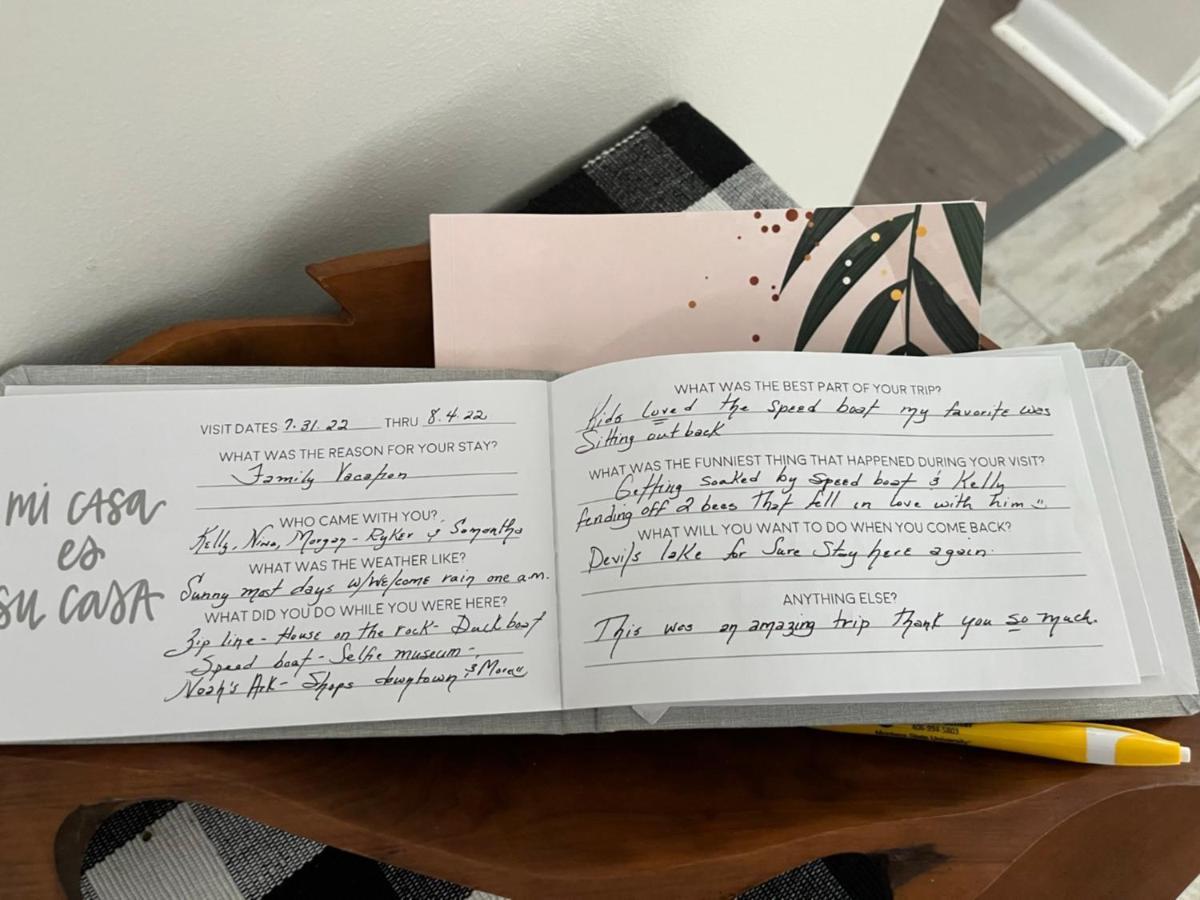 mi casa
es
su casa
VISIT DATES 7.31.22 THRU 8.4.22
WHAT WAS THE REASON FOR YOUR STAY?
Family Vacation
WHO CAME WITH YOU?
Kelly, Nina, Morgan - Ryker & Samantha
WHAT WAS THE WEATHER LIKE?
Sunny most days w/welcome rain one a.m.
WHAT DID YOU DO WHILE YOU WERE HERE?
Zip line - House on the rock - Duck boat
Speed boat - Selfie museum -
Noah's Ark - Shops downtown &
WHAT WAS THE BEST PART OF YOUR TRIP?
Kids loved the speed boat my favorite was
Sitting out back
WHAT WAS THE FUNNIEST THING THAT HAPPENED DURING YOUR VISIT?
Getting soaked by Speed boat & Kelly
fending off 2 bees that fell in love with him
WHAT WILL YOU WANT TO DO WHEN YOU COME BACK?
Devil's lake for Sure Stay here again.
ANYTHING ELSE?
This was an amazing trip Thank you so much.
406-994-5803
Montana State University